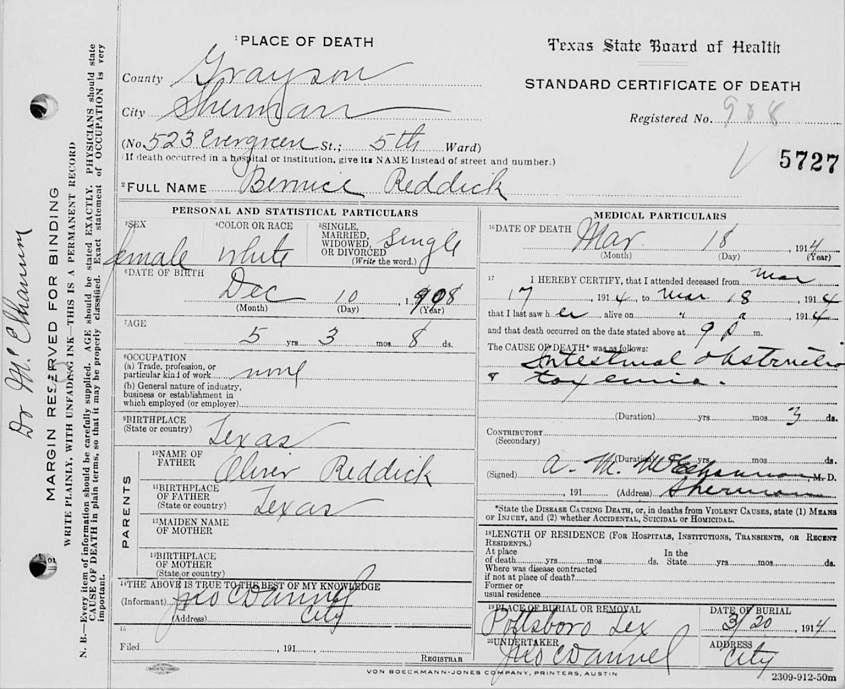 ¹PLACE OF DEATH
County Grayson
City Sherman
(No. 523 Evergreen St.; 5th Ward)
(If death occurred in a hospital or institution, give its NAME instead of street and number.)
²FULL NAME Bernice Reddick
Texas State Board of Health
STANDARD CERTIFICATE OF DEATH
Registered No. 908
5727
PERSONAL AND STATISTICAL PARTICULARS
³SEX
female
⁴COLOR OR RACE
White
⁵SINGLE, MARRIED, WIDOWED, OR DIVORCED
(Write the word.)
Single
⁶DATE OF BIRTH
Dec 10, 1908
(Month) (Day) (Year)
⁷AGE
5 yrs 3 mos 8 ds.
⁸OCCUPATION
(a) Trade, profession, or
particular kind of work none
(b) General nature of industry,
business or establishment in
which employed (or employer)
⁹BIRTHPLACE
(State or country)
Texas
PARENTS
¹⁰NAME OF
FATHER
Oliver Reddick
¹¹BIRTHPLACE
OF FATHER
(State or country)
Texas
¹²MAIDEN NAME
OF MOTHER
¹³BIRTHPLACE
OF MOTHER
(State or country)
¹⁴THE ABOVE IS TRUE TO THE BEST OF MY KNOWLEDGE
(Informant) Jno C Dannel
(Address) City
15
Filed , 191
REGISTRAR
MEDICAL PARTICULARS
¹⁶DATE OF DEATH
Mar 18 1914
(Month) (Day) (Year)
17 I HEREBY CERTIFY, that I attended deceased from Mar
17, 1914, to Mar 18, 1914
that I last saw her alive on " ", 1914
and that death occurred on the date stated above at 9 P m.
The CAUSE OF DEATH* was as follows:
Intestinal obstructio
& toxemia.
(Duration) yrs mos 3 ds.
CONTRIBUTORY
(Secondary)
(Duration) yrs mos ds.
(Signed) A. M. McElhannon, M. D.
, 191 (Address) Sherman
*State the DISEASE CAUSING DEATH, or, in deaths from VIOLENT CAUSES, state (1) MEANS
OF INJURY, and (2) whether ACCIDENTAL, SUICIDAL or HOMICIDAL.
¹⁸LENGTH OF RESIDENCE (FOR HOSPITALS, INSTITUTIONS, TRANSIENTS, OR RECENT
RESIDENTS.)
At place In the
of death yrs mos ds. State yrs mos ds.
Where was disease contracted
if not at place of death?
Former or
usual residence
¹⁹PLACE OF BURIAL OR REMOVAL
Pottsboro Tex
DATE OF BURIAL
3/20, 1914
²⁰UNDERTAKER
Jno C Dannel
ADDRESS
City
VON BOECKMANN-JONES COMPANY, PRINTERS, AUSTIN
2309-912-50m
Dr McElhannon
MARGIN RESERVED FOR BINDING
WRITE PLAINLY, WITH UNFADING INK—THIS IS A PERMANENT RECORD
N. B.—Every item of information should be carefully supplied. AGE should be stated EXACTLY. PHYSICIANS should state
CAUSE OF DEATH in plain terms, so that it may be properly classified. Exact statement of OCCUPATION is very
important.